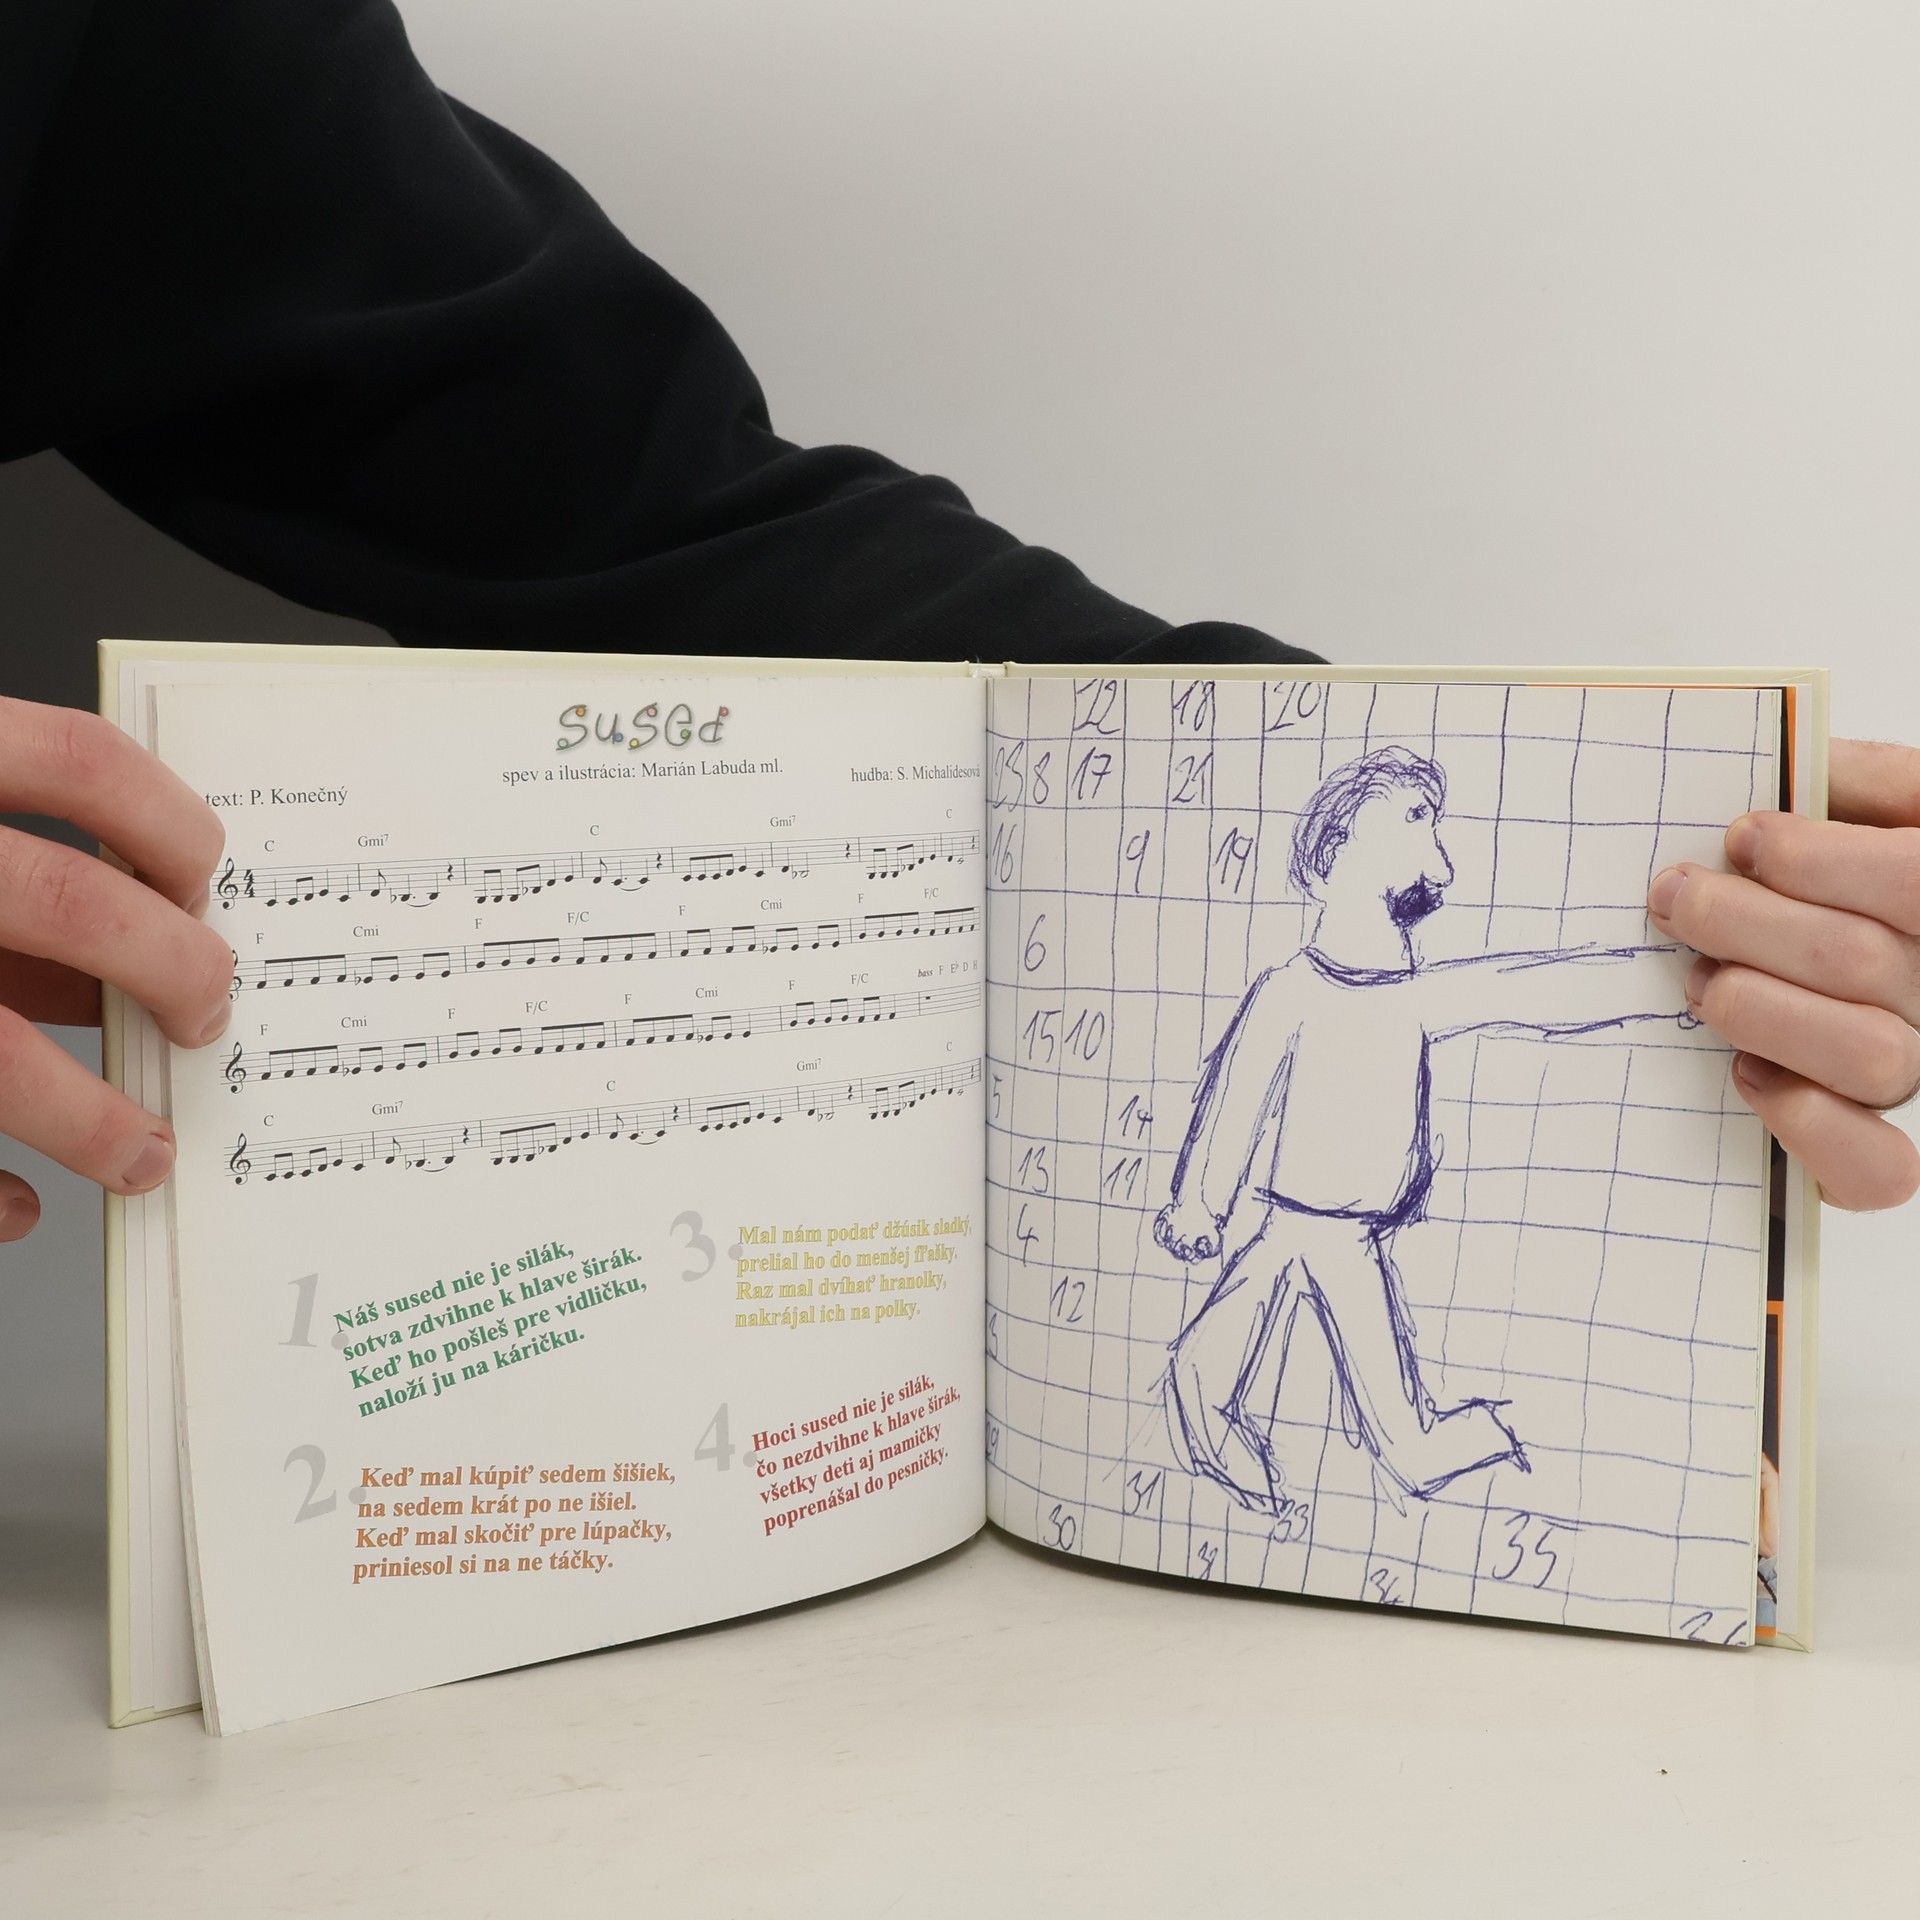 sused
spev a ilustrácia: Marián Labuda ml.
text: P. Konečný
hudba: S. Michalidesová
C Gmi7 C Gmi7 C
4
4
F Cmi F F/C F Cmi F F/C
bass F Eb D H
F Cmi F F/C F Cmi F F/C
C Gmi7 C Gmi7 C
1.
Náš sused nie je silák,
sotva zdvihne k hlave širák.
Keď ho pošleš pre vidličku,
naloží ju na káričku.
2.
Keď mal kúpiť sedem šišiek,
na sedem krát po ne išiel.
Keď mal skočiť pre lúpačky,
priniesol si na ne táčky.
3.
Mal nám podať džúsik sladký,
prelial ho do menšej fľašky.
Raz mal dvíhať hranolky,
nakrájal ich na polky.
4.
Hoci sused nie je silák,
čo nezdvihne k hlave širák,
všetky deti aj mamičky
poprenášal do pesničky.
22 18 20
23 8 17 21
16 9 19
6
15 10
5 14
13 11
4
12
31
30 33 35
34